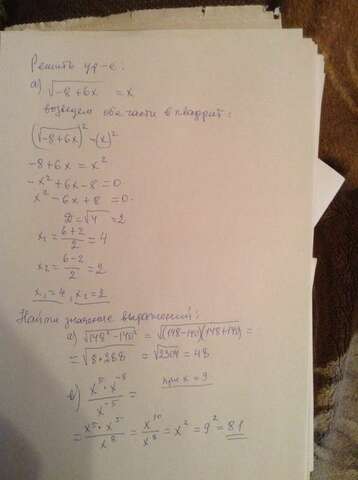 Решить ур-е:
а) √(-8+6x) = x
возведем обе части в квадрат:
(√(-8+6x))² = (x)²
-8+6x = x²
-x²+6x-8=0
x²-6x+8=0
D=√4=2
x₁ = (6+2)/2 = 4
x₂ = (6-2)/2 = 2
x₁=4, x₂=2
Найти значение выражений:
а) √(148²-140²) = √((148-140)(148+140)) =
= √(8*288) = √2304 = 48
в) (x⁵*x⁻⁸)/x⁻⁵ = при x=9
= (x⁵*x⁵)/x⁸ = x¹⁰/x⁸ = x² = 9² = 81